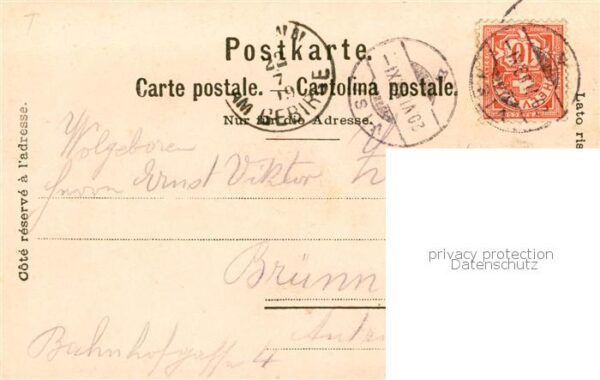 Postkarte.
Carte postale. — Cartolina postale.
Nur für die Adresse.
Côté réservé à l'adresse.
Lato ris
Wolgeboren
Herrn Ernst Viktor
Brünn
Bahnhofgasse 4
privacy protection
Datenschutz
GEBIRGE
10
HELV